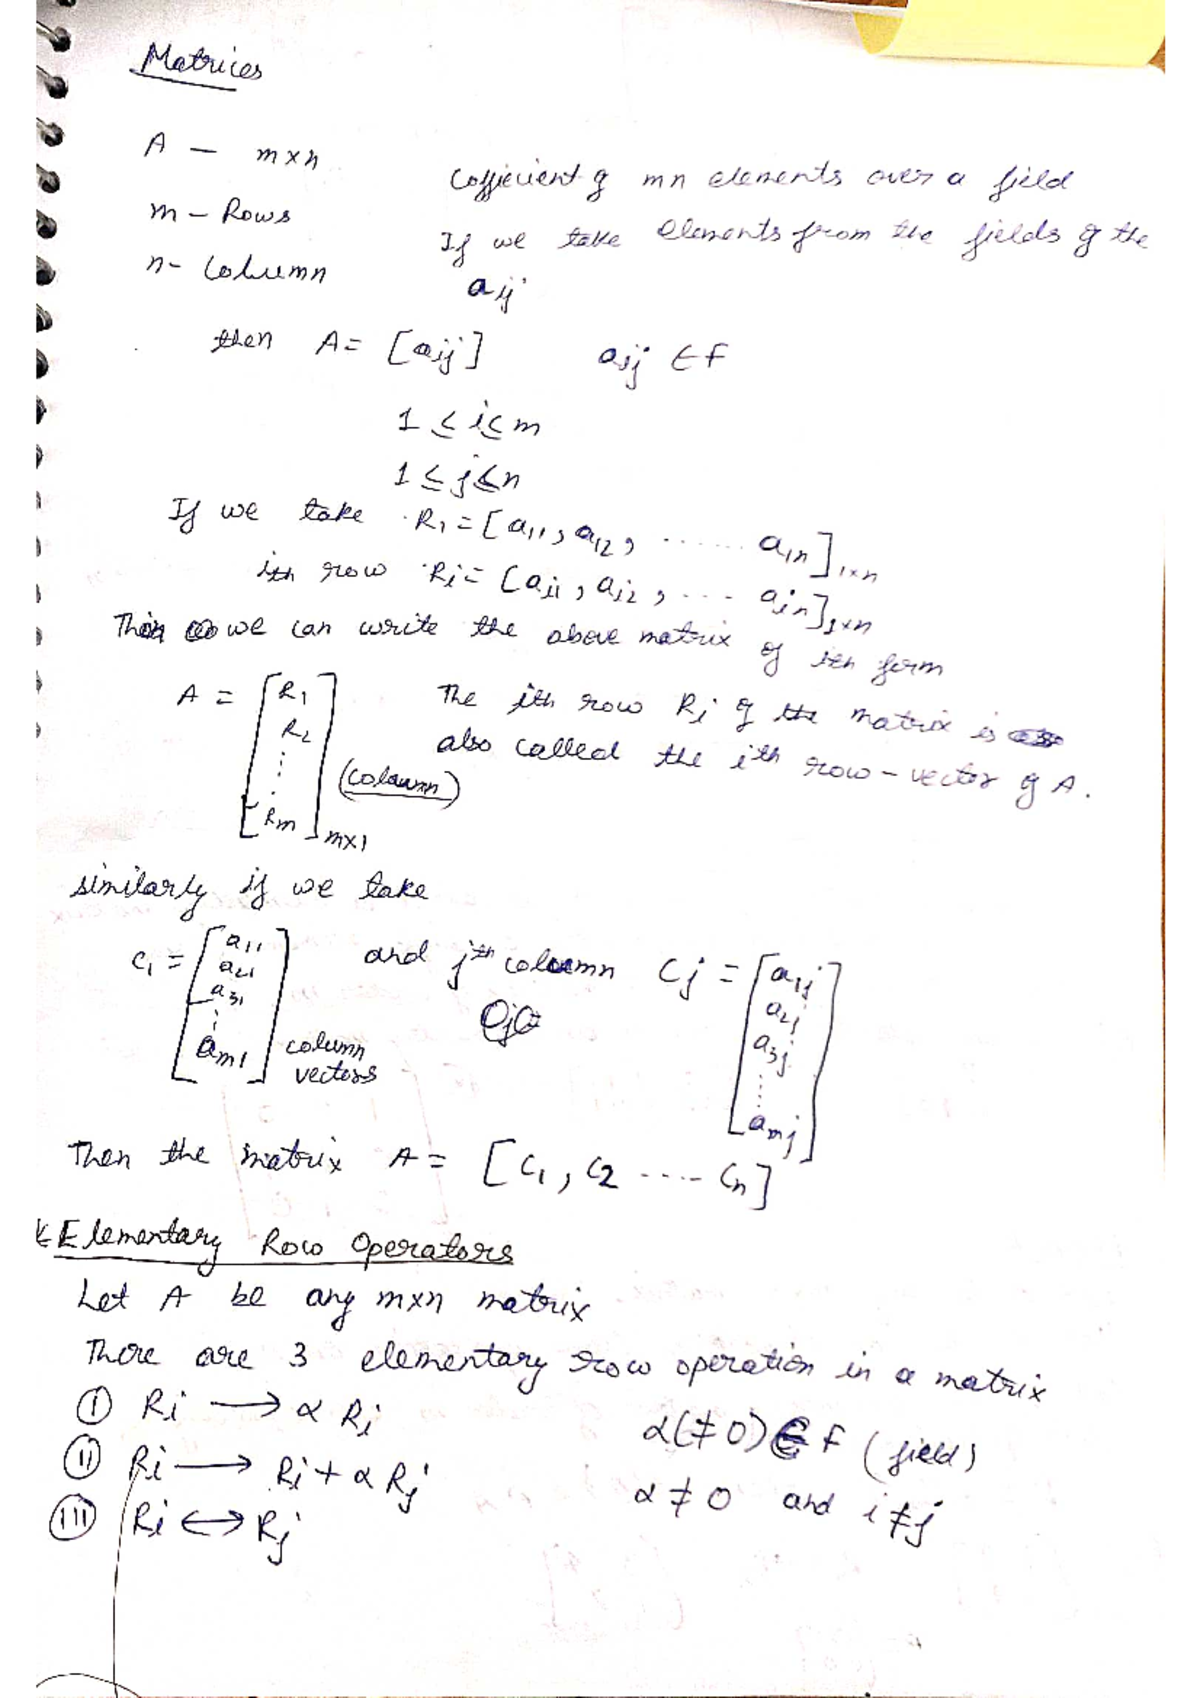 Matrices
A - m×n
Cofficient of mn elements over a field
m - Rows
If we take elements from the fields of the
n- Column
aij
then A = [aij] aij ∈ F
1 ≤ i ≤ m
1 ≤ j ≤ n
If we take R1 = [a11, a12, ...... a1n]1×n
ith row Ri = [ai1, ai2, ... ain]1×n
Then we can write the above matrix of ith form
A = [R1
R2
⋮
Rm]m×1 (column)
The ith row Ri of the matrix is
also called the ith row-vector of A.
similarly if we take
C1 = [a11
a21
a31
⋮
am1] column
vectors
and jth column Cj = [a1j
a2j
a3j
⋮
amj]
Then the matrix A = [C1, C2 ..... Cn]
Elementary Row Operators
Let A be any m×n matrix
There are 3 elementary row operation in a matrix
(i) Ri ⟶ α Ri α(≠0) ∈ F (field)
(ii) Ri ⟶ Ri + α Rj α ≠ 0 and i ≠ j
(iii) Ri ↔ Rj